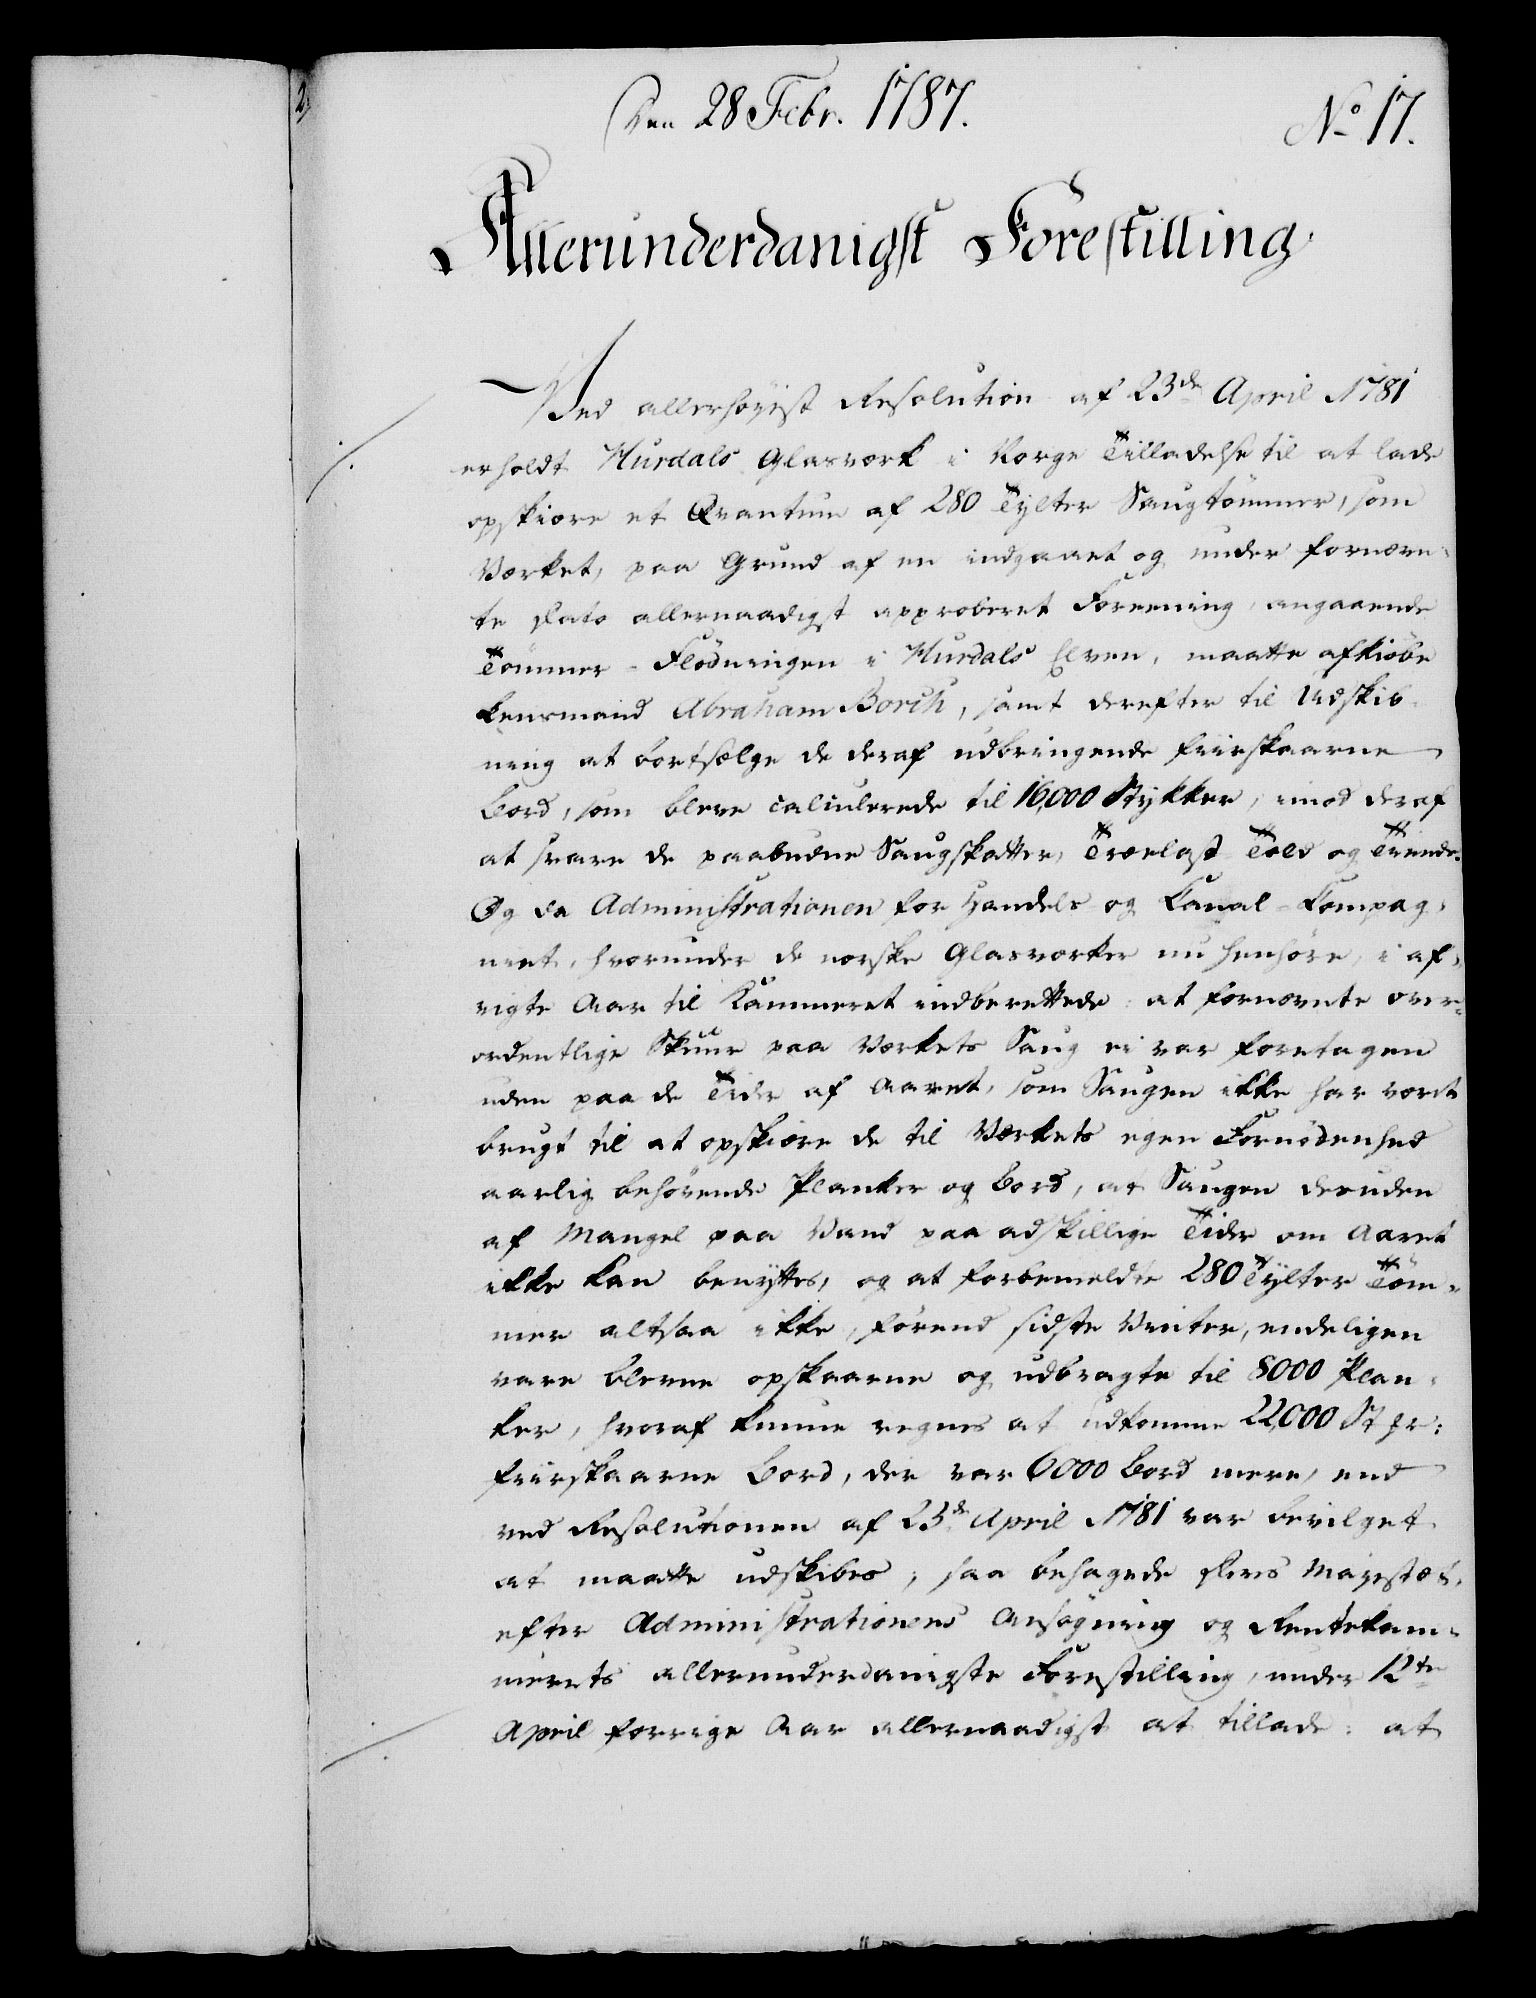 Den 28 Febr. 1787.
No 17.
Allerunderdanigst Forestilling
Ved allerhøyist Resolution af 23de April 1781
erholdt Hurdals Glasværk i Norge Tilladelse til at lade
opskiære et Qvantum af 280 Tylter Saugtømmer, som
Værket, paa Grund af en indgaaet og under fornævn-
te Dato allernaadigst approberet Foreening, angaaende
Tømmer-Flødningen i Hurdals Elven, maatte afkiøbe
Lensmand Abraham Borch, samt derefter til Udskib-
ning at bortsælge de deraf udbringende friirskaarne
Bord, som bleve calculerede til 16,000 Stykker, imod deraf
at svare de paabudne Saugskatter, Trælast Told og Tiende.
Og da Administrationen for Handels og Kanal-Kompag-
niet, hvorunder de norske Glasværker nu henhøre, i af-
vigte Aar til Kammeret indberettede: at fornævnte over-
ordentlige Skuur paa Værkets Saug ei var foretagen
uden paa de Tider af Aaret, som Saugen ikke har vært
brugt til at opskiære de til Værkets egen Fornødenhed
aarlig behøvende Planker og Bord, at Saugen desuden
af Mangel paa Vand paa adskillige Tider om Aaret
ikke kan benyttes, og at forbemeldte 280 Tylter Tøm-
mer altsaa ikke, førend sidste Vinter, endeligen
vare blevne opskaarne og udbragte til 8000 Plan-
ker, hvoraf kunne regnes at udkomme 22,000 St
friirskaarne Bord, der var 6000 Bord mere, end
ved Resolutionen af 23de April 1781 var bevilget
at maatte udskibes; saa behagede Deres Majestæt,
efter Administrationens Ansøgning og Rentekam-
merets allerunderdanigste Forestilling, under 12te
April forrige Aar allernaadigst at tillade: at